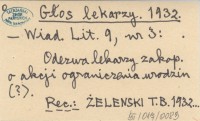 Głos lekarzy. 1932.
— Wiad. Lit. 9, nr 3:
Odezwa lekarzy zakop.
o akcji ograniczania urodzin
(?).
Rec.: ŻELEŃSKI T.B. 1932...